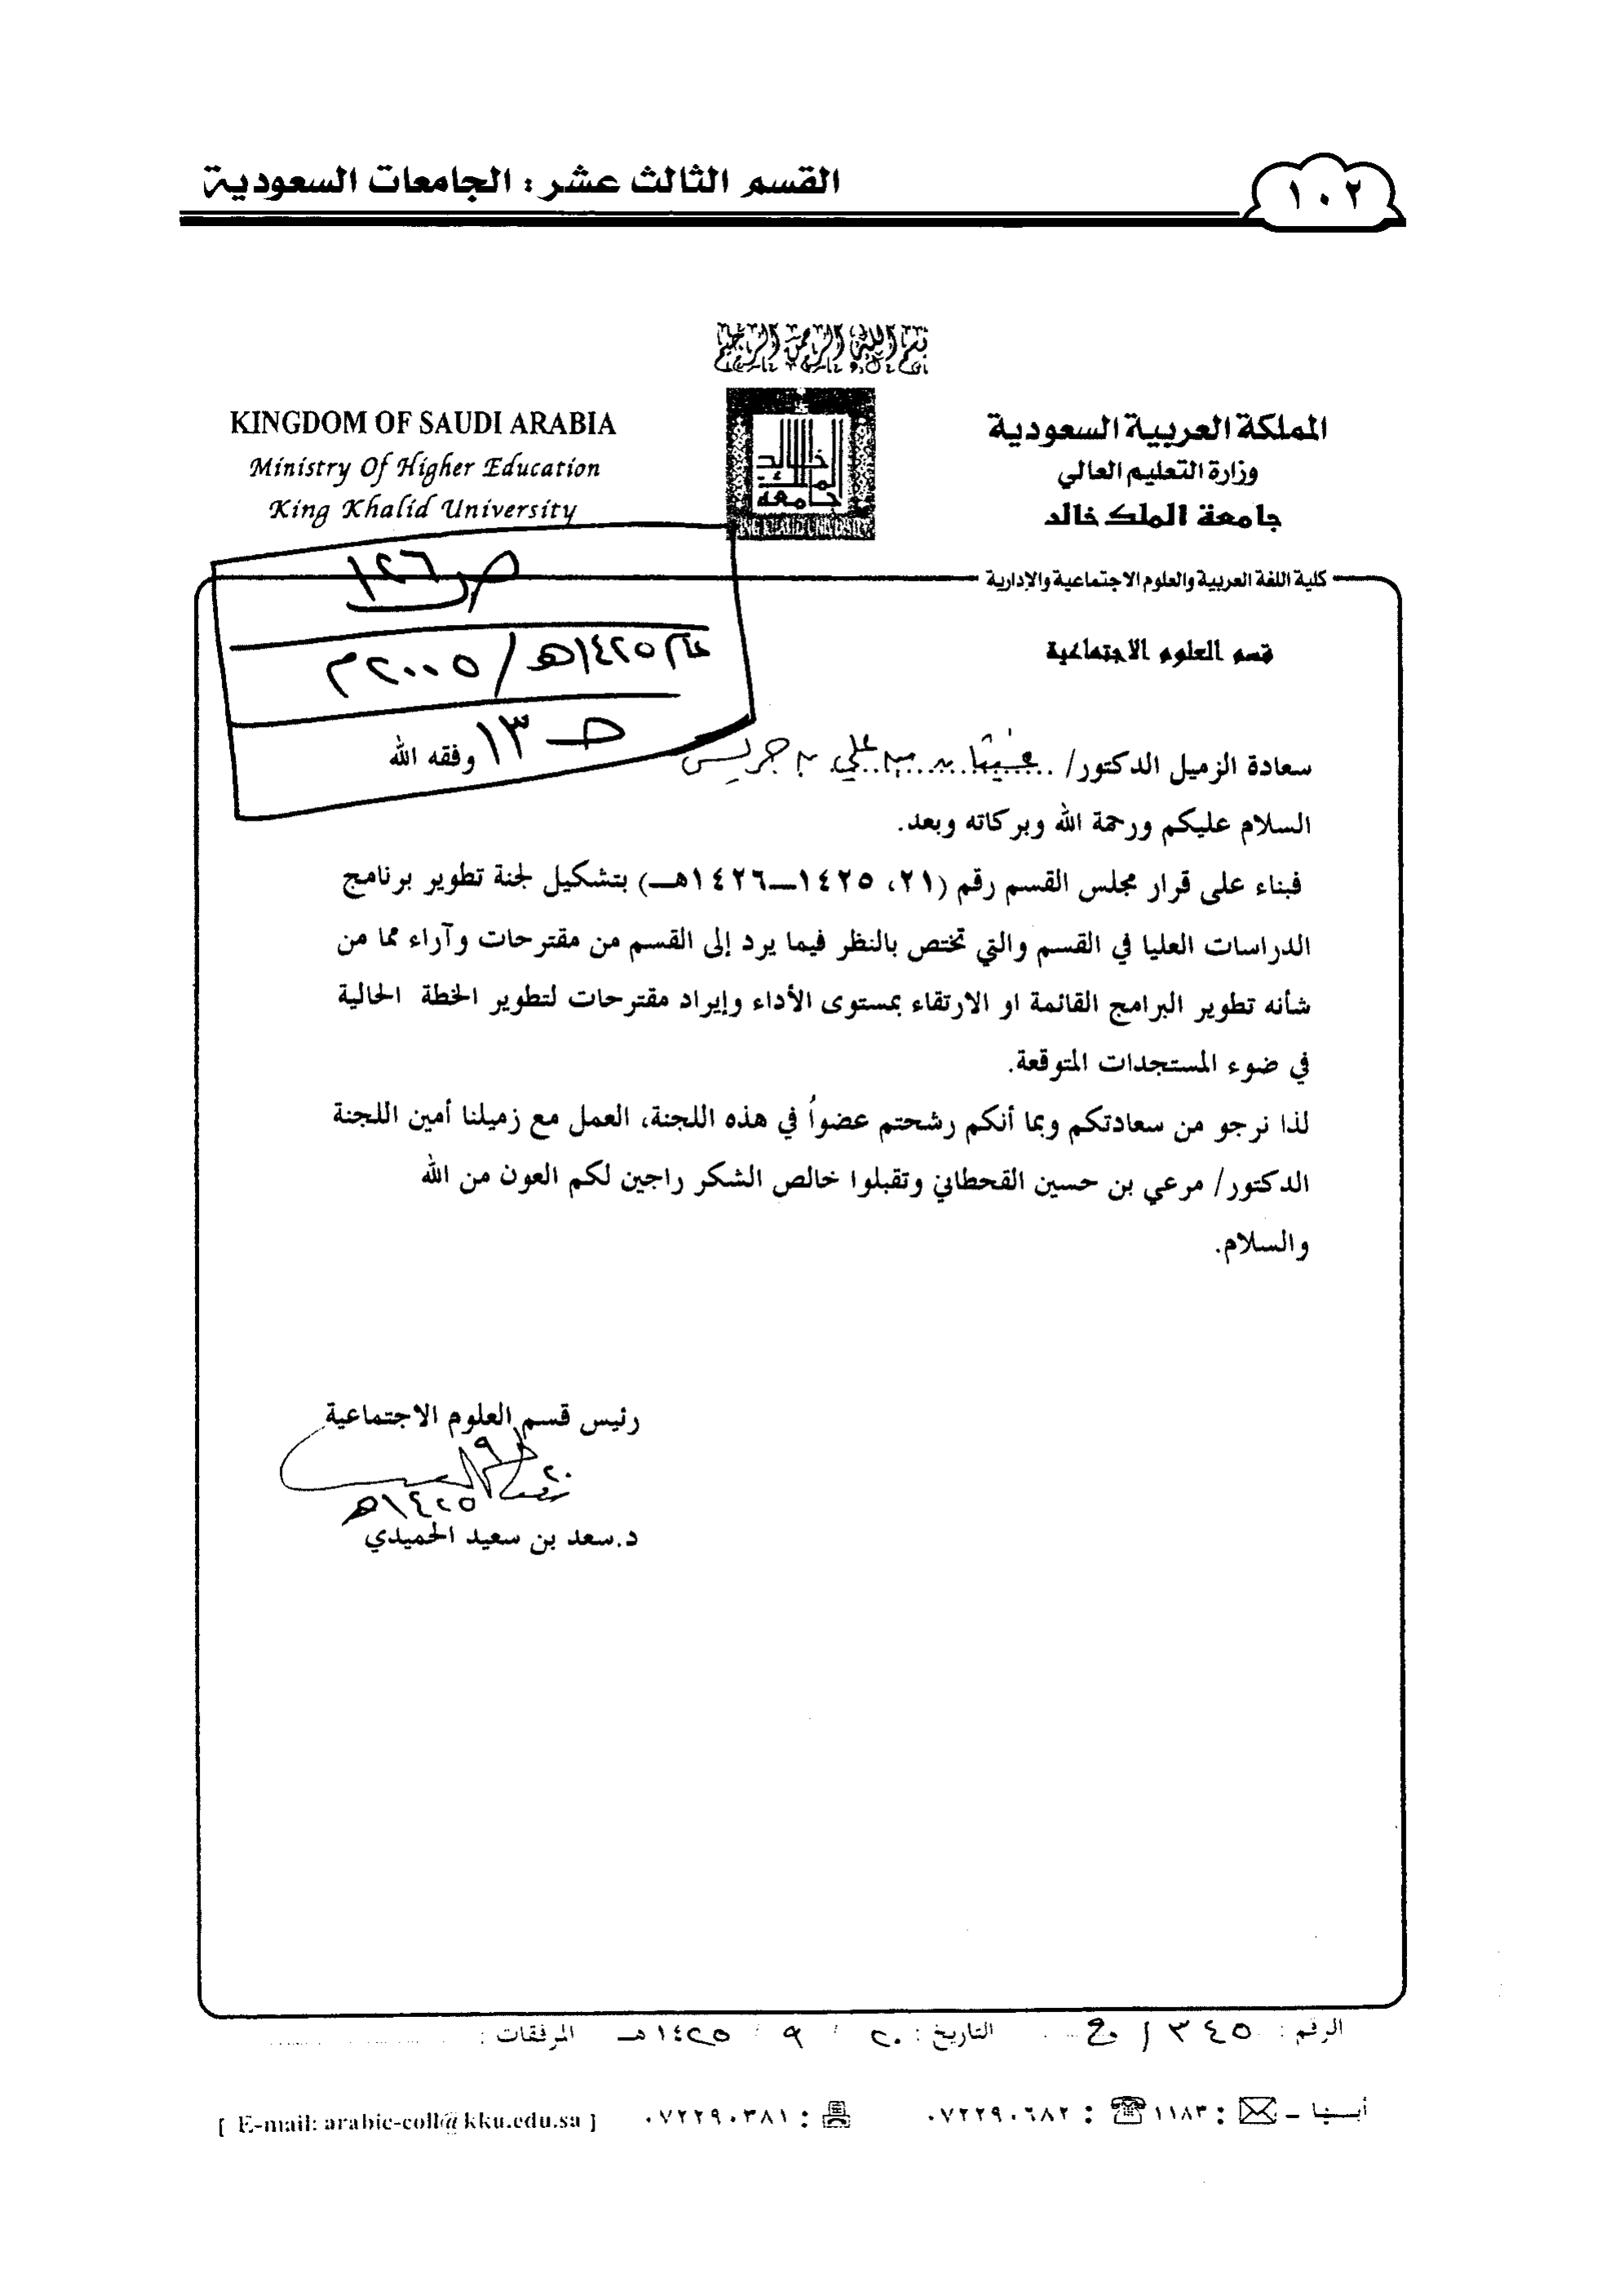 القسم الثالث عشر : الجامعات السعودية
١٠٢
بسم الله الرحمن الرحيم
KINGDOM OF SAUDI ARABIA
Ministry Of Higher Education
King Khalid University
جامعة الملك خالد
KING KHALID UNIVERSITY
المملكة العربية السعودية
وزارة التعليم العالي
جامعة الملك خالد
كلية اللغة العربية والعلوم الاجتماعية والإدارية
ص ١٢٦
عام ١٤٢٥هـ / ٢٠٠٥م
حـ ١٣
قسم العلوم الاجتماعية
سعادة الزميل الدكتور/ بن علي بن جريس وفقه الله
السلام عليكم ورحمة الله وبركاته وبعد.
فبناء على قرار مجلس القسم رقم (٢١، ١٤٢٥ــ١٤٢٦هــ) بتشكيل لجنة تطوير برنامج
الدراسات العليا في القسم والتي تختص بالنظر فيما يرد إلى القسم من مقترحات وآراء مما من
شأنه تطوير البرامج القائمة او الارتقاء بمستوى الأداء وإيراد مقترحات لتطوير الخطة الحالية
في ضوء المستجدات المتوقعة.
لذا نرجو من سعادتكم وبما أنكم رشحتم عضواً في هذه اللجنة، العمل مع زميلنا أمين اللجنة
الدكتور/ مرعي بن حسين القحطاني وتقبلوا خالص الشكر راجين لكم العون من الله
والسلام.
رئيس قسم العلوم الاجتماعية
٢٠ ٩
١٤٢٥هـ
د.سعد بن سعيد الحميدي
الرقم : ٣٤٥ / ج التاريخ : ٢٠ / ٩ / ١٤٢٥هـ المرفقات :
أبها - : ١١٨٣ : ٠٧٢٢٩٠٦٨٢ : ٠٧٢٢٩٠٣٨١ [ E-mail: arabic-coll@kku.edu.sa ]